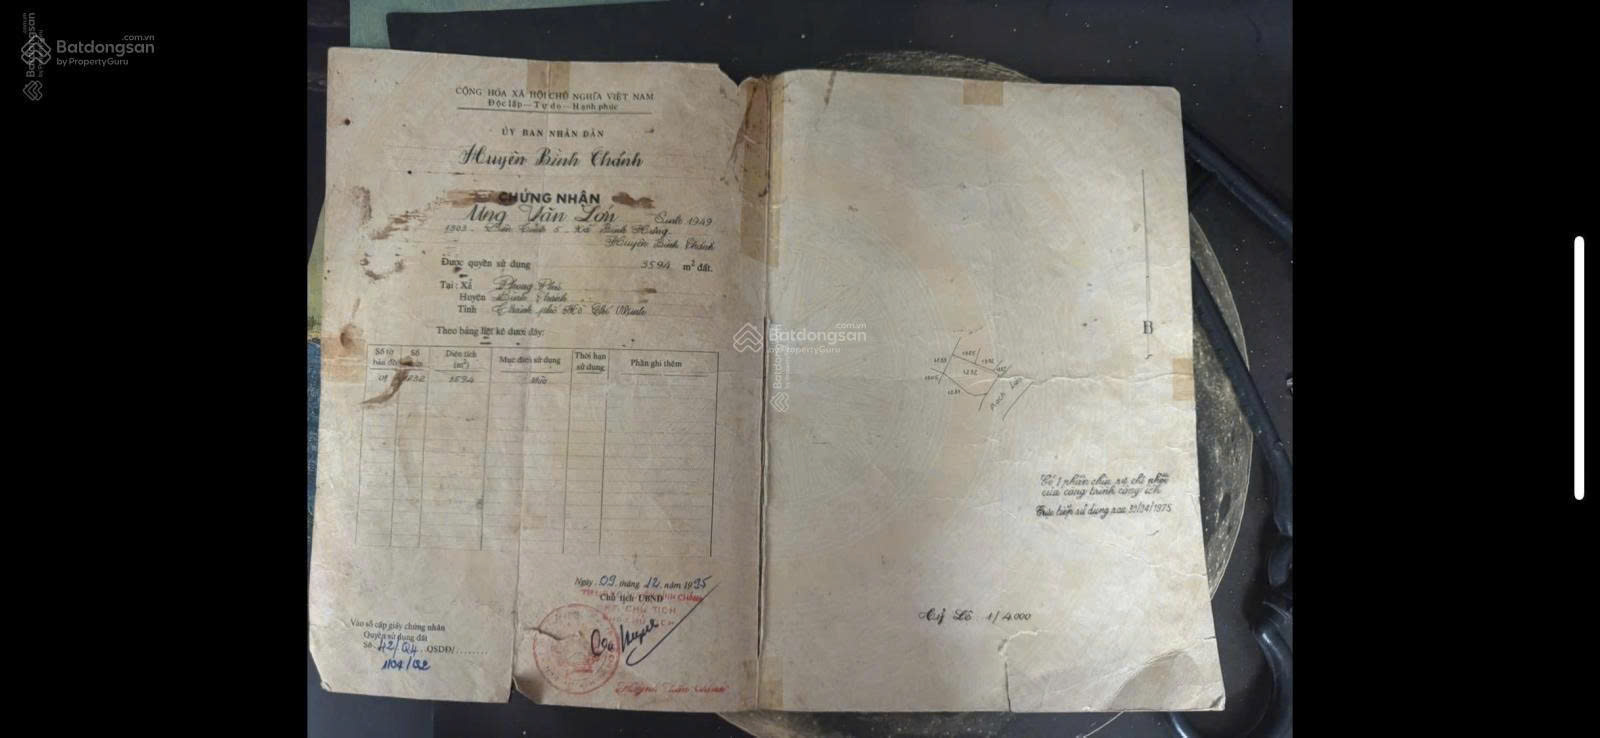 Batdongsan.com.vn
by PropertyGuru
CỘNG HÒA XÃ HỘI CHỦ NGHĨA VIỆT NAM
Độc lập — Tự do — Hạnh phúc
ỦY BAN NHÂN DÂN
Huyện Bình Chánh
CHỨNG NHẬN
Ưng Văn Lớn Sinh 1949
1303 5 Xã Bình Hưng
Huyện Bình Chánh
Được quyền sử dụng 3594 m² đất.
Tại : Xã Phong Phú
Huyện Bình Chánh
Tỉnh Thành phố Hồ Chí Minh
Theo bảng liệt kê dưới đây:
Số tờ bản đồ Số Diện tích (m²) Mục đích sử dụng Thời hạn sử dụng Phần ghi thêm
01 1232 3594 Màu
Ngày 09 tháng 12 năm 1995
Chủ tịch UBND
KT. CHỦ TỊCH
Vào sổ cấp giấy chứng nhận
Quyền sử dụng đất
Số 42/Q4 QSDĐ/........
Huỳnh Văn
B
Batdongsan.com.vn
by PropertyGuru
1232
Rạch
Có 1 phần chịu sự chi phối
của công trình công ích
Trực tiếp sử dụng sau 30/04/1975
Tỷ Lệ 1/4.000